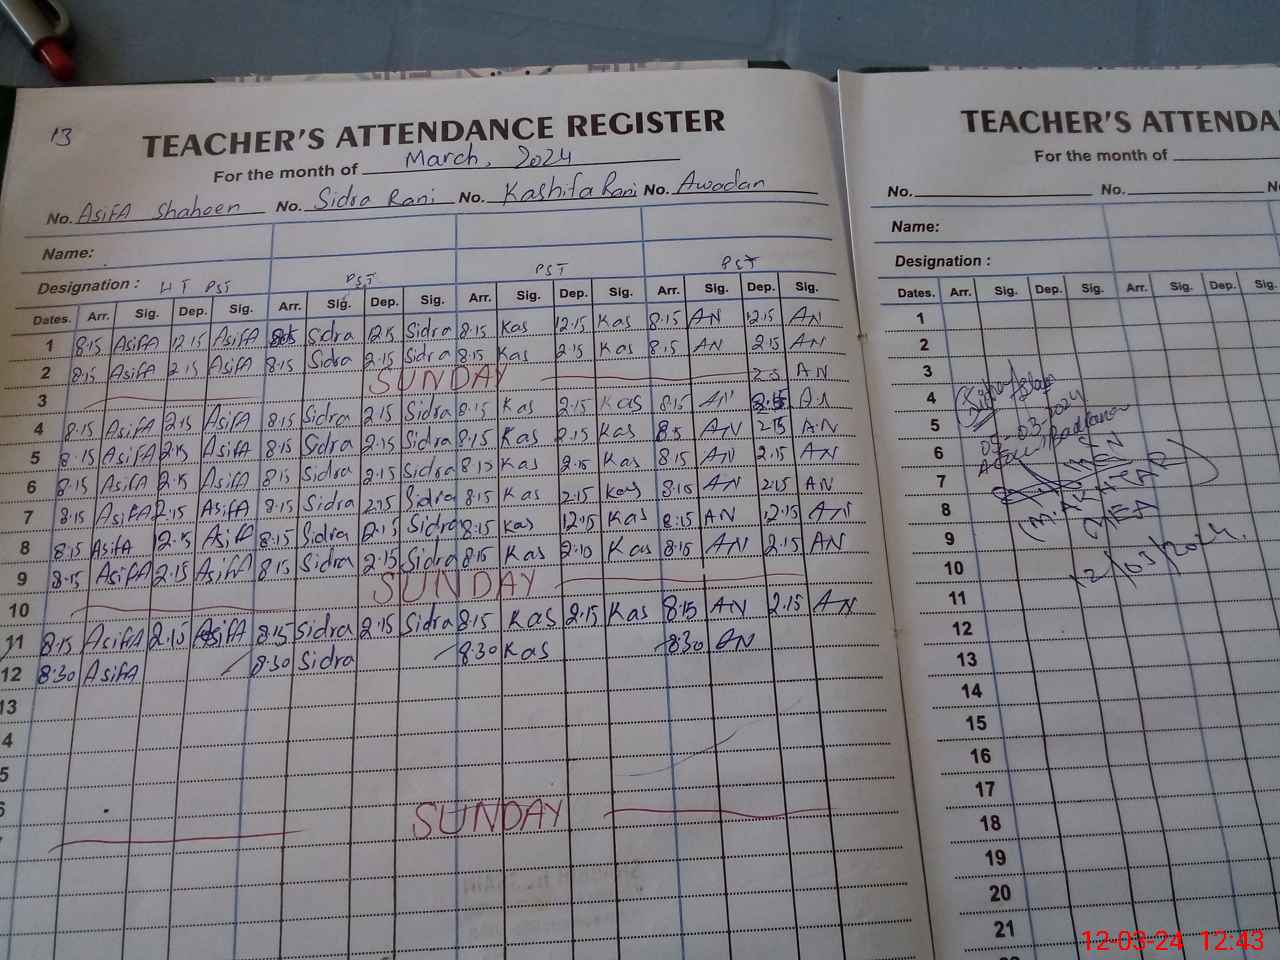 13
TEACHER'S ATTENDANCE REGISTER
For the month of March, 2024
No. AsifA Shaheen No. Sidra Rani No. Kashifa Rani No. Awadan
Name:
Designation : HT PST PST PST PST
Dates. Arr. Sig. Dep. Sig. Arr. Sig. Dep. Sig. Arr. Sig. Dep. Sig. Arr. Sig. Dep. Sig.
1 8·15 AsifA 12·15 AsifA 8·15 Sidra 12·15 Sidra 8·15 Kas 12·15 Kas 8·15 AN 12·15 AN
2 8·15 AsifA 2·15 AsifA 8·15 Sidra 2·15 Sidra 8·15 Kas 2·15 Kas 8·15 AN 2·15 AN
3 SUNDAY AN
4 8·15 AsifA 2·15 AsifA 8·15 Sidra 2·15 Sidra 8·15 Kas 2·15 Kas 8·15 AN 2·15 AN
5 8·15 AsifA 2·15 AsifA 8·15 Sidra 2·15 Sidra 8·15 Kas 2·15 Kas 8·5 AN 2·15 AN
6 8·15 AsifA 2·15 AsifA 8·15 Sidra 2·15 Sidra 8·15 Kas 2·15 Kas 8·15 AN 2·15 AN
7 8·15 AsifA 2·15 AsifA 8·15 Sidra 2·15 Sidra 8·15 Kas 2·15 Kas 8·15 AN 2·15 AN
8 8·15 AsifA 12·15 AsifA 8·15 Sidra 2·15 Sidra 8·15 Kas 12·15 Kas 8·15 AN 12·15 AN
9 8·15 AsifA 2·15 AsifA 8·15 Sidra 2·15 Sidra 8·15 Kas 2·10 Kas 8·15 AN 2·15 AN
10 SUNDAY
11 8·15 AsifA 2·15 AsifA 8·15 Sidra 2·15 Sidra 8·15 Kas 2·15 Kas 8·15 AN 2·15 AN
12 8·30 AsifA 8·30 Sidra 8·30 Kas 8·30 AN
13
4
5
6
SUNDAY
TEACHER'S ATTENDA
For the month of
No. No. N
Name:
Designation :
Dates. Arr. Sig. Dep. Sig. Arr. Sig. Dep. Sig.
1
2
3
4
5
6
7
8
9
10
11
12
13
14
15
16
17
18
19
20
21
05-03-2024
MEA
12/03/2024.
12-03-24 12:43